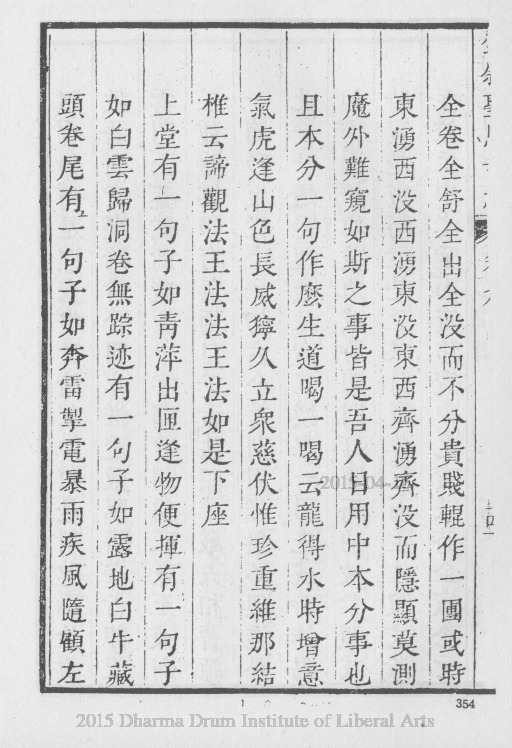 全卷全舒全出全没而不分貴賤輥作一團或時
東湧西没西湧東没東西齊湧齊没而隱顯莫測
魔外難窺如斯之事皆是吾人日用中本分事也
且本分一句作麽生道喝一喝云龍得水時增意
氣虎逢山色長威獰久立衆慈伏惟珍重維那結
椎云諦觀法王法法王法如是下座
上堂有一句子如青萍出匣逢物便揮有一句子
如白雲歸洞卷無踪迹有一句子如露地白牛藏
頭卷尾有一句子如奔雷掣電暴雨疾風隨顧左
354
2015-04-
2015 Dharma Drum Institute of Liberal Arts